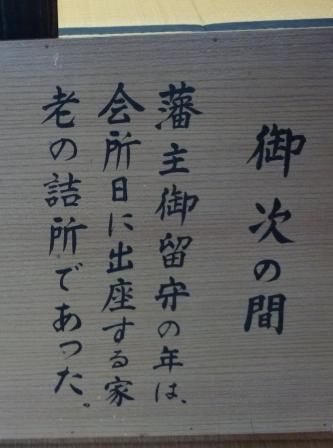 御次の間
藩主御留守の年は、
会所日に出座する家
老の詰所であった。